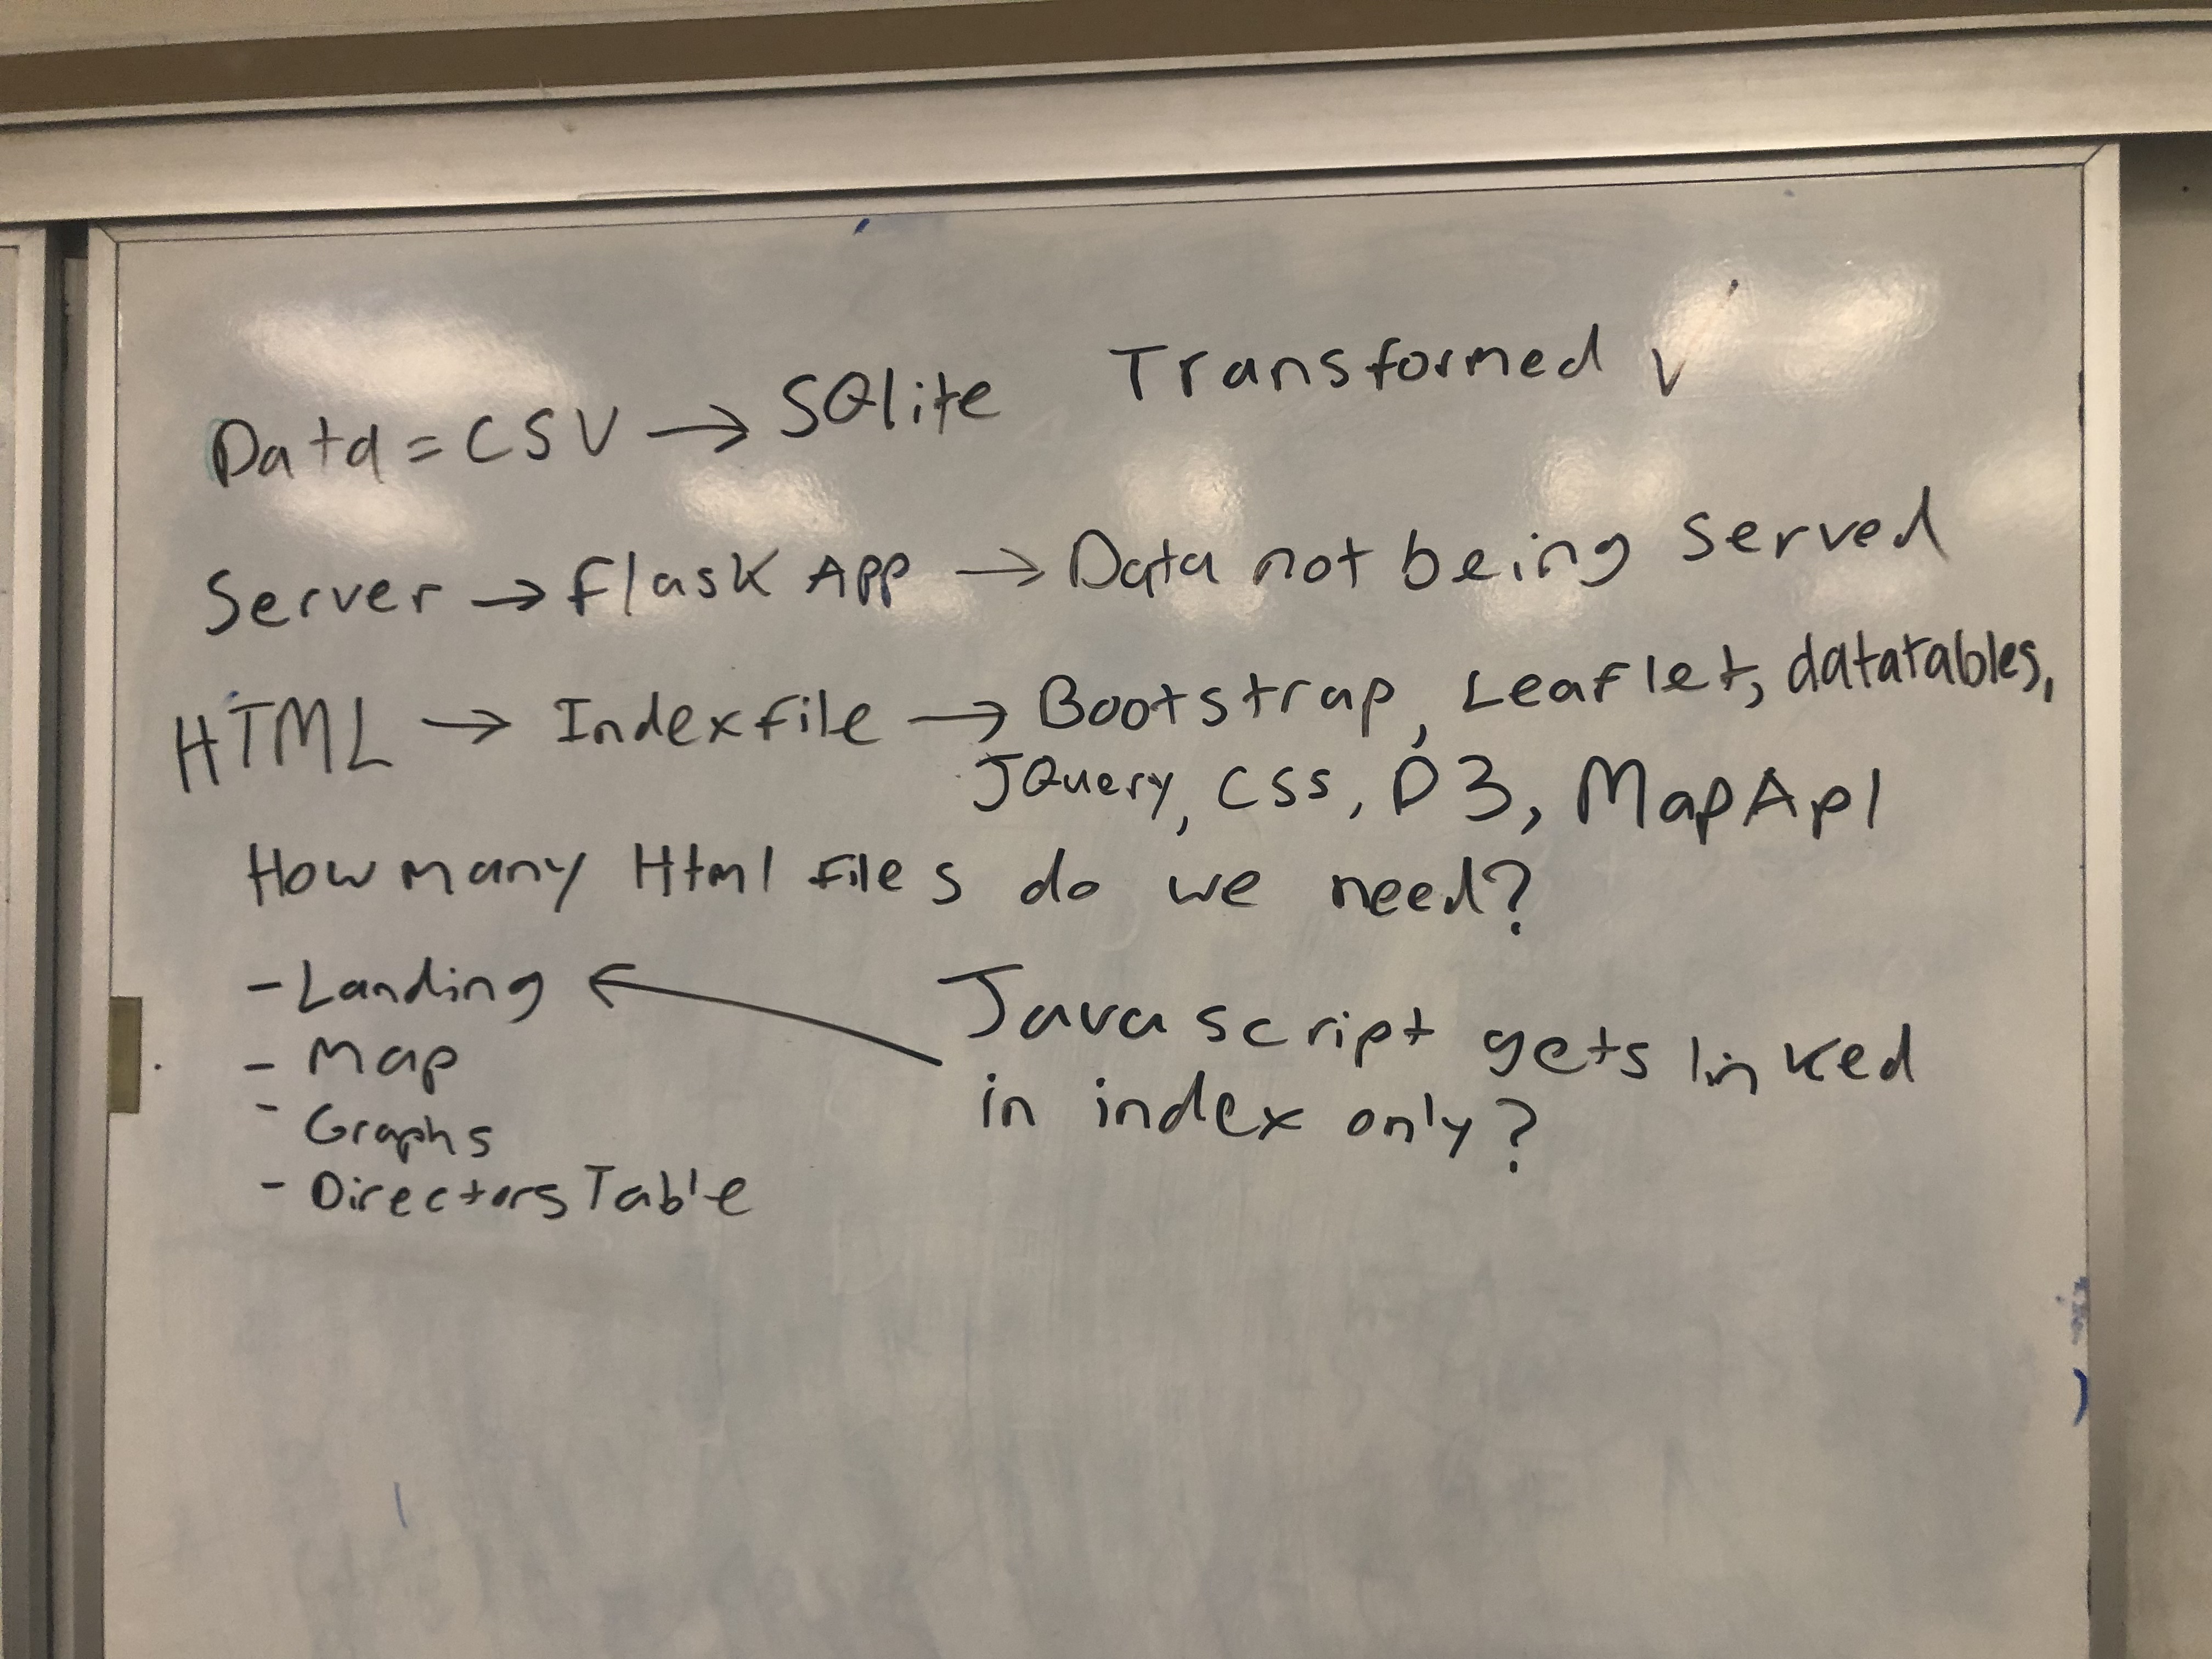 Data = CSV → SQlite Transformed ✓
Server → flask App → Data not being served
HTML → Indexfile → Bootstrap, Leaflet, datatables,
JQuery, CSS, D3, MapApI
How many Html files do we need?
- Landing ←
- Map
- Graphs
- Directors Table
Javascript gets linked
in index only?